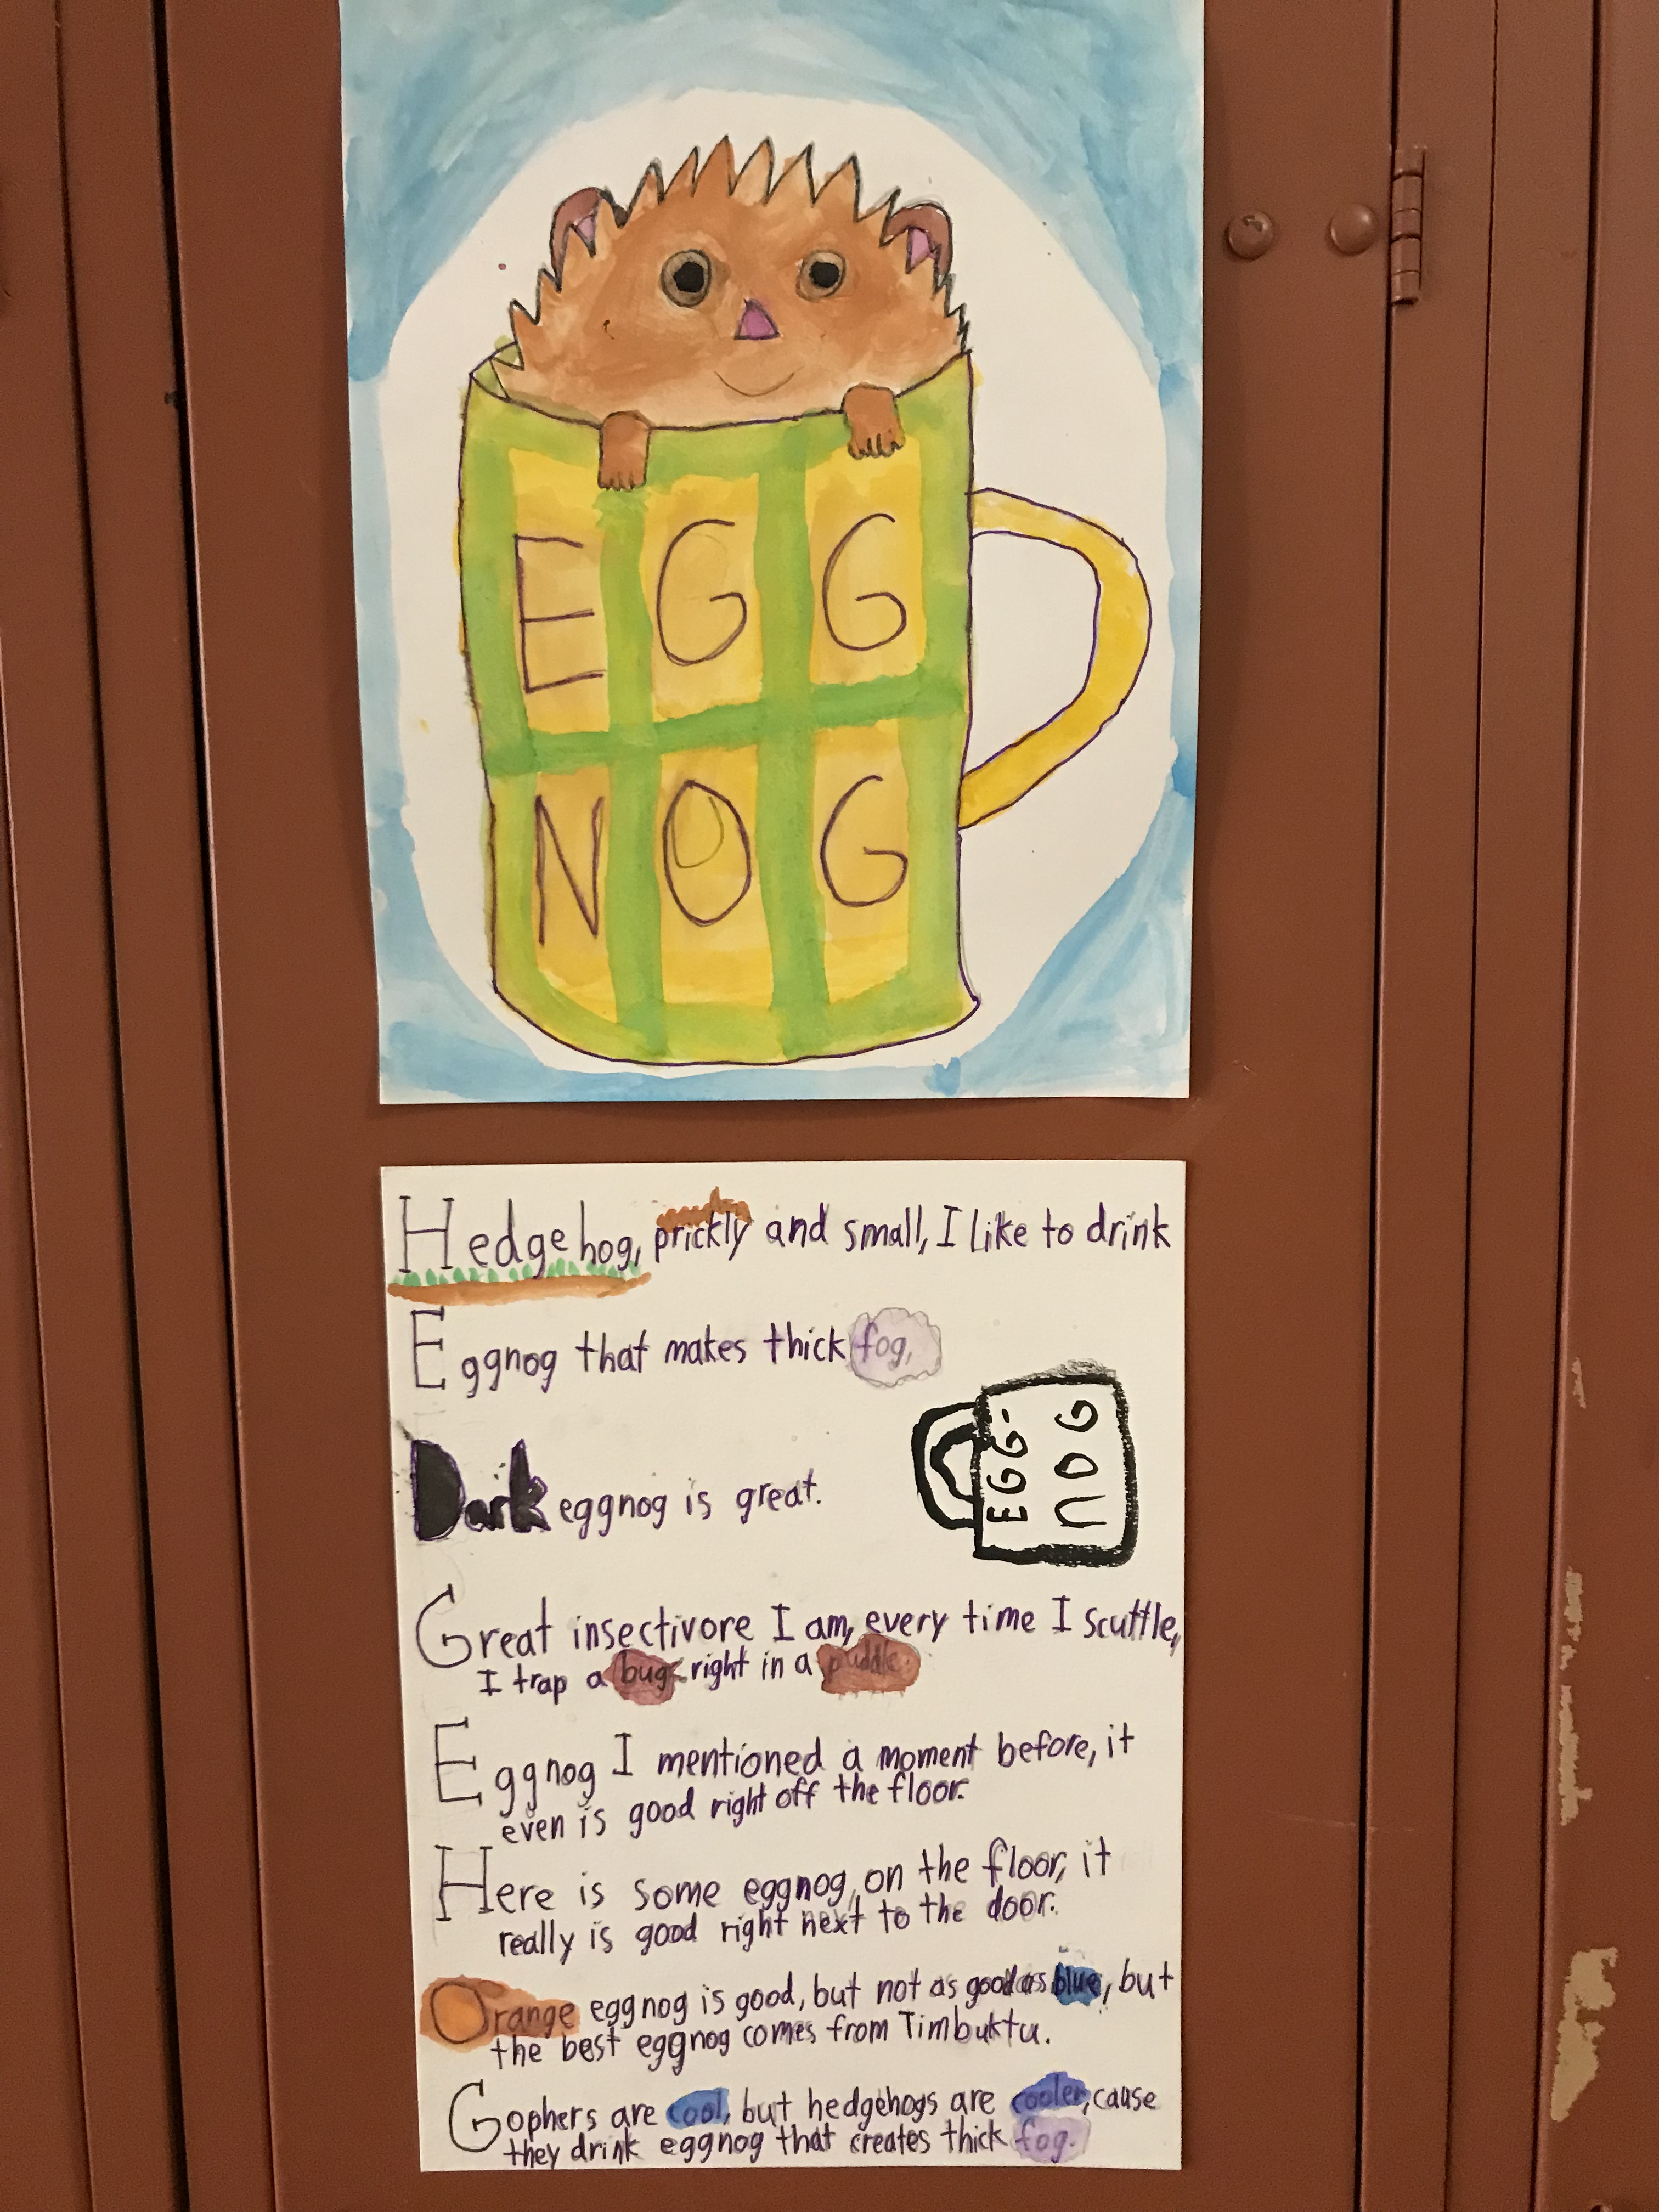 EGG
NOG
Hedgehog, prickly and small, I like to drink
Eggnog that makes thick fog,
Dark eggnog is great.
EGG-
NOG
Great insectivore I am, every time I scuttle,
I trap a bug right in a puddle.
Eggnog I mentioned a moment before, it
even is good right off the floor.
Here is some eggnog on the floor, it
really is good right next to the door.
Orange eggnog is good, but not as good as blue, but
the best eggnog comes from Timbuktu.
Gophers are cool, but hedgehogs are cooler, cause
they drink eggnog that creates thick fog.